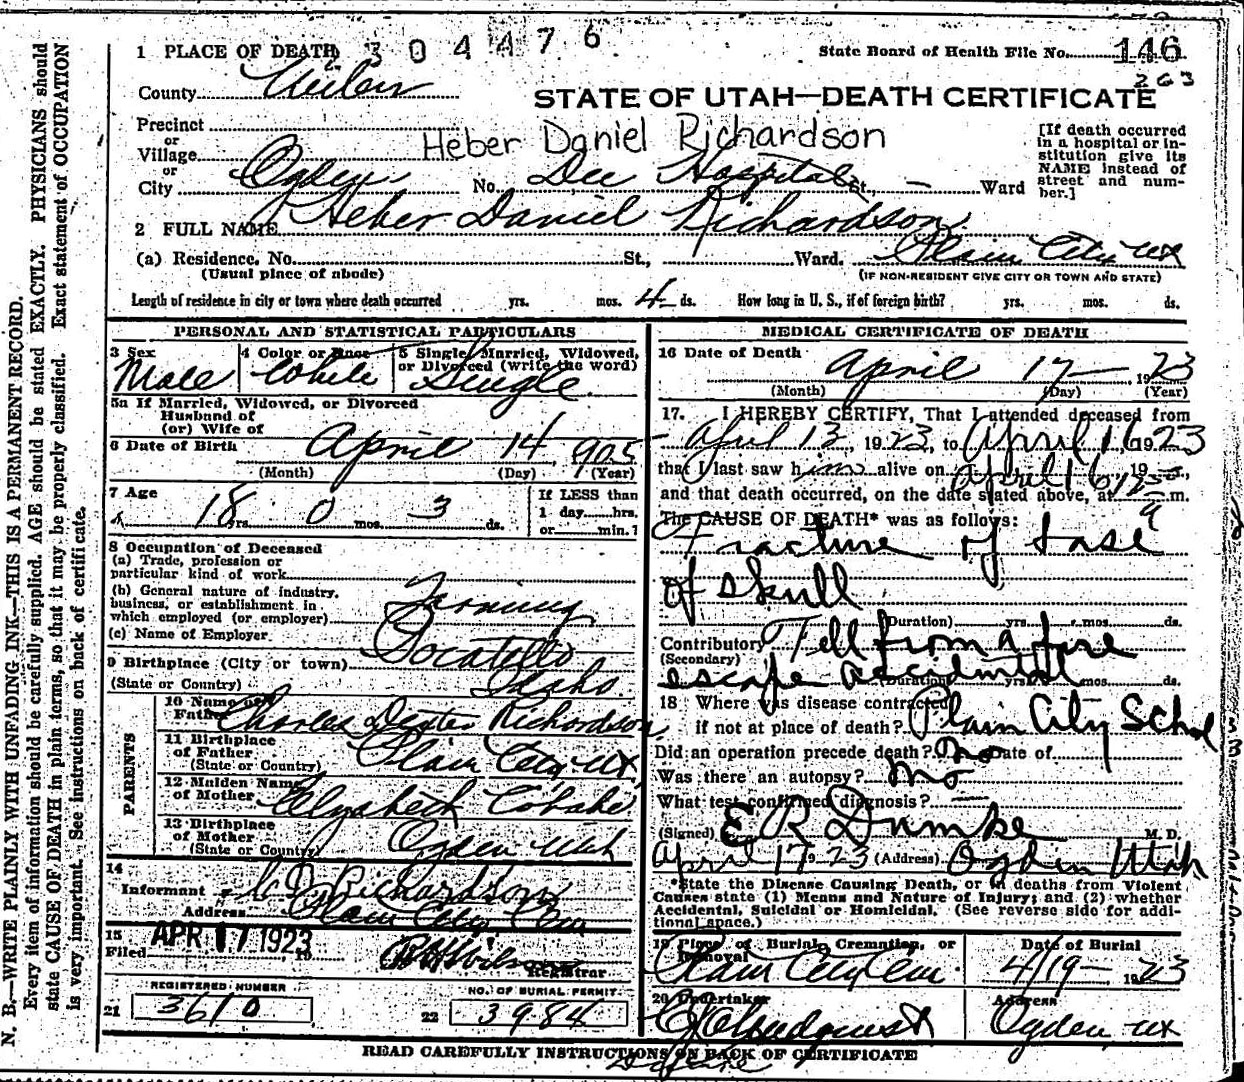 1 PLACE OF DEATH 2304476 State Board of Health File No. 146
263
County Weber
STATE OF UTAH—DEATH CERTIFICATE
Precinct
or
Village Heber Daniel Richardson
or
City Ogden No. Dee Hospital St., — Ward
[If death occurred
in a hospital or in-
stitution give its
NAME instead of
street and num-
ber.]
2 FULL NAME Heber Daniel Richardson
(a) Residence. No. St., Ward. Plain City Ut
(Usual place of abode) (IF NON-RESIDENT GIVE CITY OR TOWN AND STATE)
Length of residence in city or town where death occurred yrs. mos. 4 ds. How long in U. S., if of foreign birth? yrs. mos. ds.
PERSONAL AND STATISTICAL PARTICULARS
3 Sex Male
4 Color or Race White
5 Single, Married, Widowed,
or Divorced (write the word)
Single
5a If Married, Widowed, or Divorced
Husband of
(or) Wife of
6 Date of Birth April 14 1905
(Month) (Day) (Year)
7 Age 18 yrs. 0 mos. 3 ds.
If LESS than
1 day hrs.
or min.?
8 Occupation of Deceased
(a) Trade, profession or
particular kind of work
(b) General nature of industry,
business, or establishment in
which employed (or employer) Farming
(c) Name of Employer
9 Birthplace (City or town) Pocatello
(State or Country) Idaho
PARENTS
10 Name of
Father Charles Dexter Richardson
11 Birthplace
of Father
(State or Country) Plain City Ut
12 Maiden Name
of Mother Elizabeth
13 Birthplace
of Mother
(State or Country) Ogden Utah
14
Informant C D Richardson
Address Plain City
15
Filed APR 17 1923, 19
Registrar
REGISTERED NUMBER
21 3610
NO. OF BURIAL PERMIT
22 3984
MEDICAL CERTIFICATE OF DEATH
16 Date of Death
April 17 1923
(Month) (Day) (Year)
17. I HEREBY CERTIFY, That I attended deceased from
April 13, 1923, to April 16 1923
that I last saw him alive on April 16, 19
and that death occurred, on the date stated above, at m.
The CAUSE OF DEATH* was as follows:
Fracture of base
of skull
(Duration) yrs. mos. ds.
Contributory Fell from a fire
(Secondary)
escape accidental
(Duration) yrs. mos. ds.
18 Where was disease contracted
if not at place of death? Plain City School
Did an operation precede death? No Date of
Was there an autopsy? No
What test confirmed diagnosis? —
(Signed) E R Dumke M. D.
April 17 1923 (Address) Ogden Utah
*State the Disease Causing Death, or in deaths from Violent
Causes state (1) Means and Nature of Injury; and (2) whether
Accidental, Suicidal or Homicidal. (See reverse side for addi-
tional space.)
19 Place of Burial, Cremation, or
Removal
Plain City Cem.
Date of Burial
4/19— 1923
20 Undertaker
Address
Ogden Ut
READ CAREFULLY INSTRUCTIONS ON BACK OF CERTIFICATE
N. B.—WRITE PLAINLY WITH UNFADING INK—THIS IS A PERMANENT RECORD.
Every item of information should be carefully supplied. AGE should be stated EXACTLY. PHYSICIANS should
state CAUSE OF DEATH in plain terms, so that it may be properly classified. Exact statement of OCCUPATION
is very important. See instructions on back of certificate.